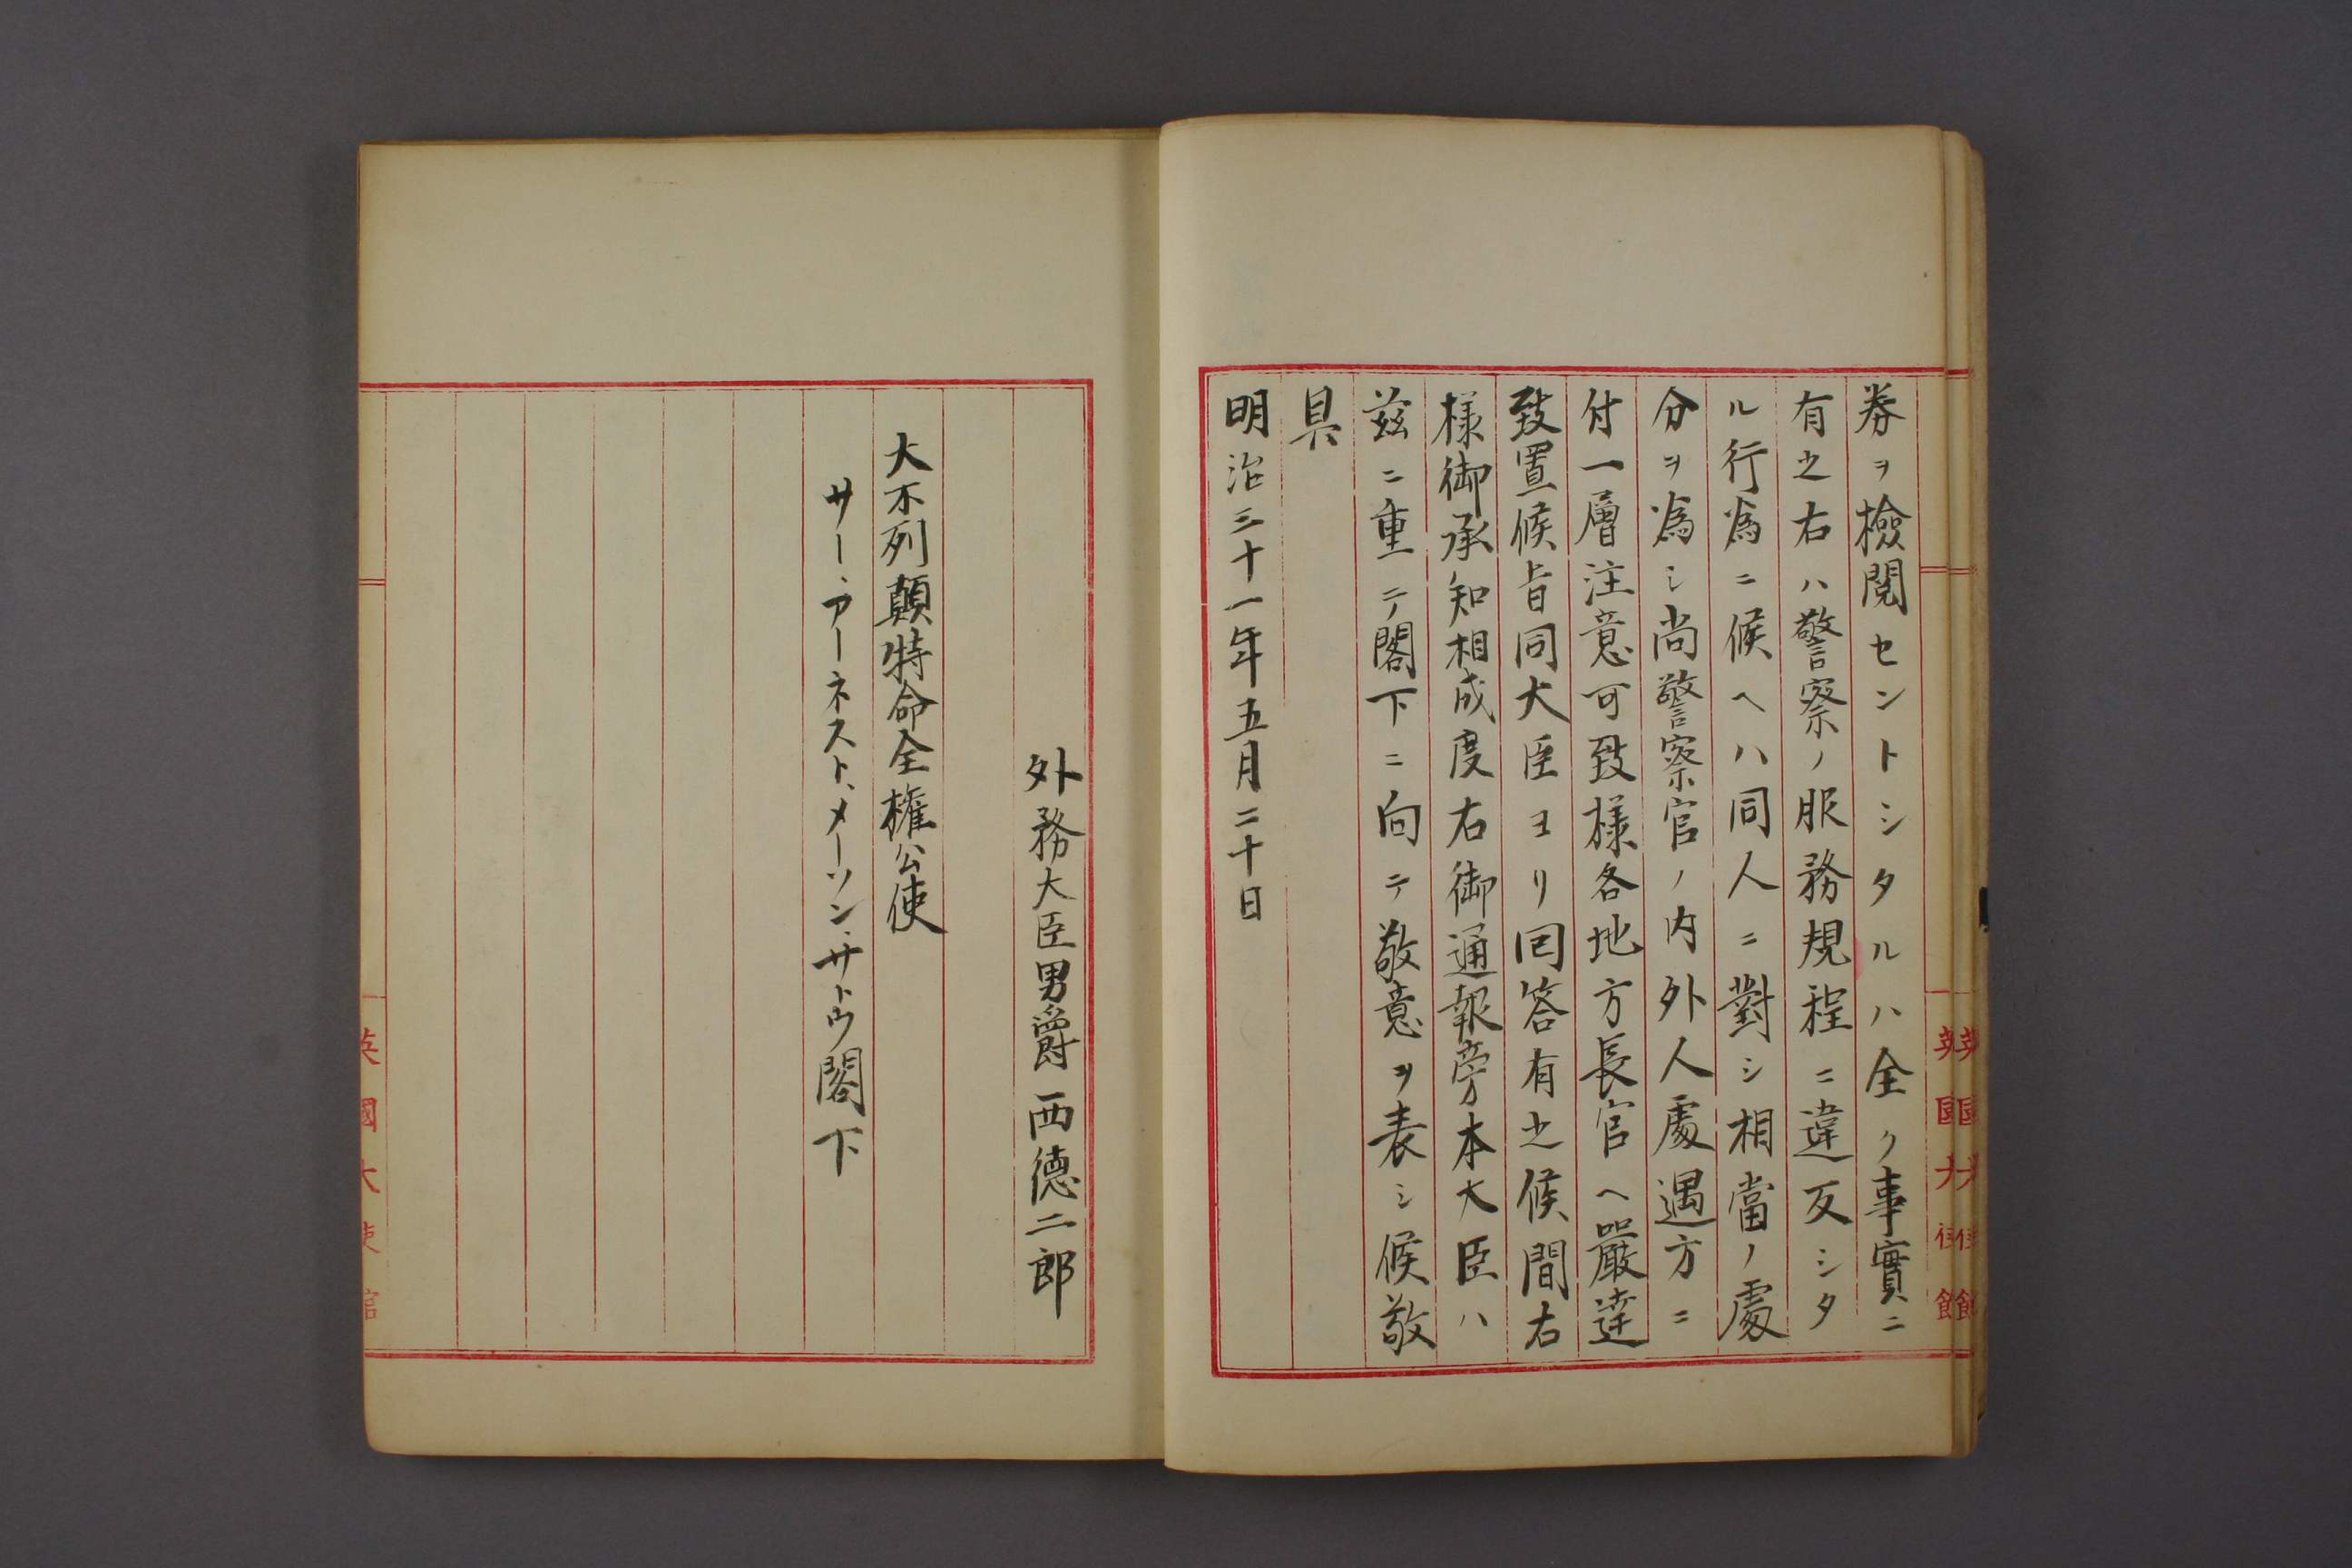 券ヲ檢閲セントシタルハ全ク事實ニ
有之右ハ警察ノ服務規程ニ違反シタ
ル行為ニ候ヘハ同人ニ對シ相當ノ處
分ヲ為シ尚警察官ノ内外人處遇方ニ
付一層注意可致様各地方長官ヘ嚴達
致置候旨同大臣ヨリ回答有之候間右
様御承知相成度右御通報旁本大臣ハ
茲ニ重テ閣下ニ向テ敬意ヲ表シ候敬
具
明治三十一年五月二十日
外務大臣男爵西德二郎
大不列顛特命全權公使
サー、アーネスト、メーソン、サトウ閣下
英國大使館
英國大使館
英國大使館